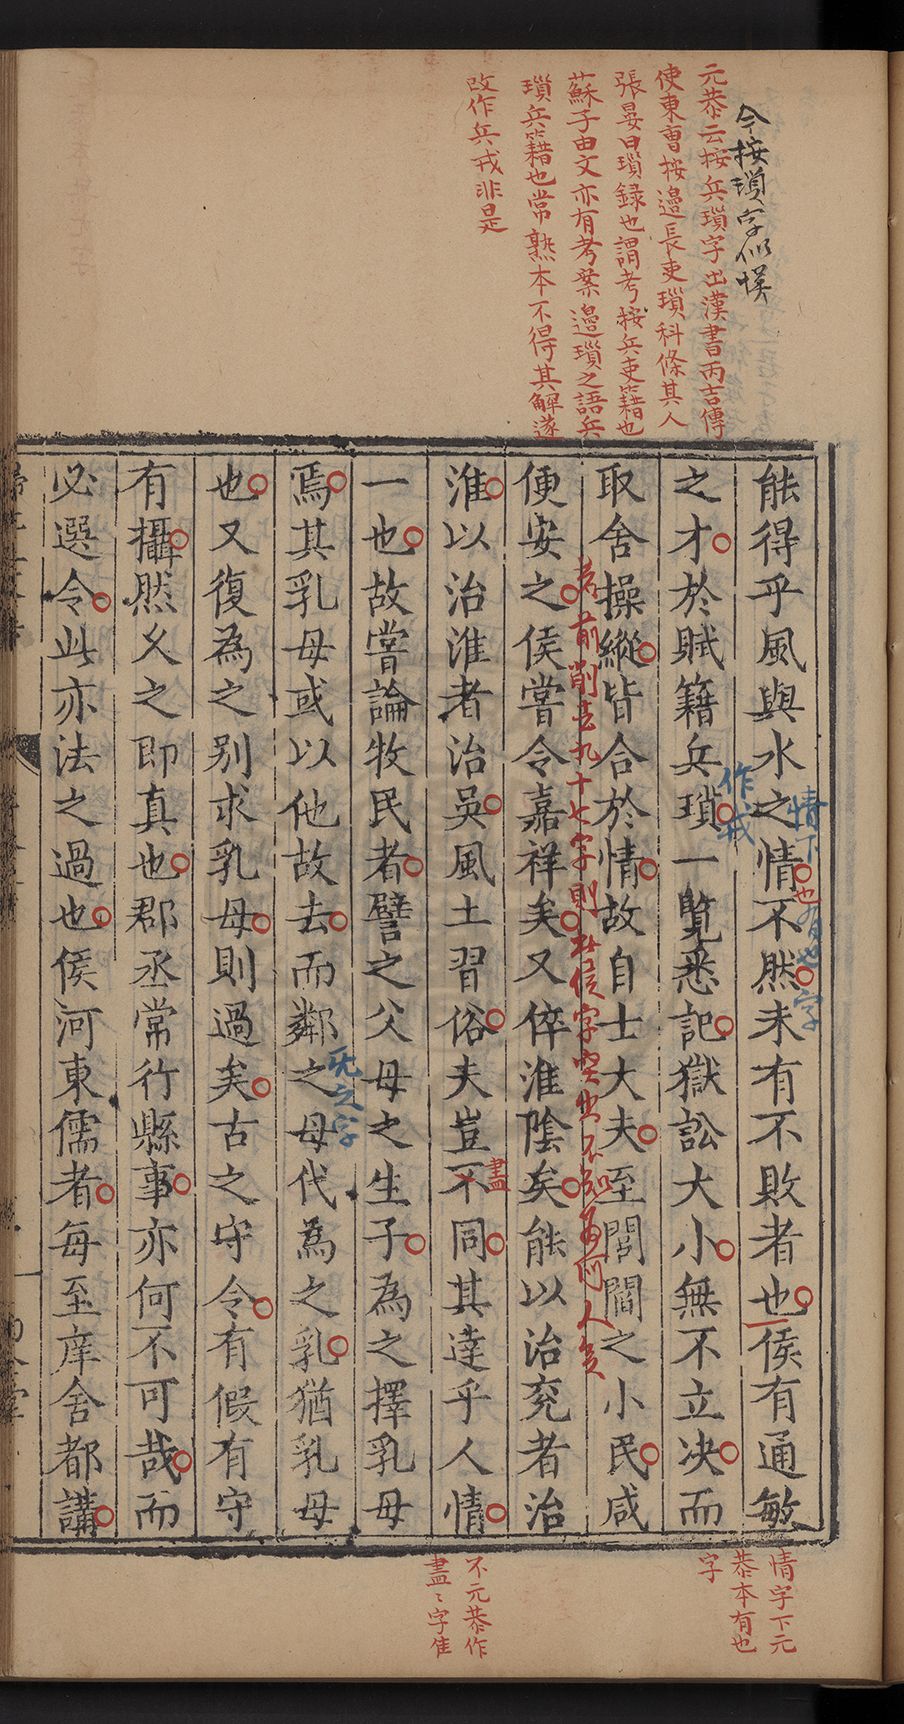 今按瑣字似悮
元恭云按兵瑣字出漢書丙吉傳
使東曹按邊長吏瑣科條其人
張晏曰瑣録也謂考按兵吏籍也
蘇子由文亦有考案邊瑣之語兵
瑣兵籍也常熟本不得其解遂
改作兵戎非是
能得乎風與水之情不然未有不敗者也侯有通敏
情下也有也字
之才於賦籍兵瑣一覽悉記獄訟大小無不立決而
作戎
取舍操縱皆合於情故自士大夫至閭閻之小民咸
若前削去九十七字則此侯字突出不知為何人矣
便安之侯嘗令嘉祥矣又倅淮陰矣能以治兖者治
淮以治淮者治吳風土習俗夫豈不同其達乎人情
盡
一也故嘗論牧民者譬之父母之生子為之擇乳母
焉其乳母或以他故去而鄰之母代為之乳猶乳母
无之字
也又復為之别求乳母則過矣古之守令有假有守
有攝然久之即真也郡丞常行縣事亦何不可哉而
必選令此亦法之過也侯河東儒者每至庠舍都講
情字下元
恭本有也
字
不元恭作
盡〻字隹